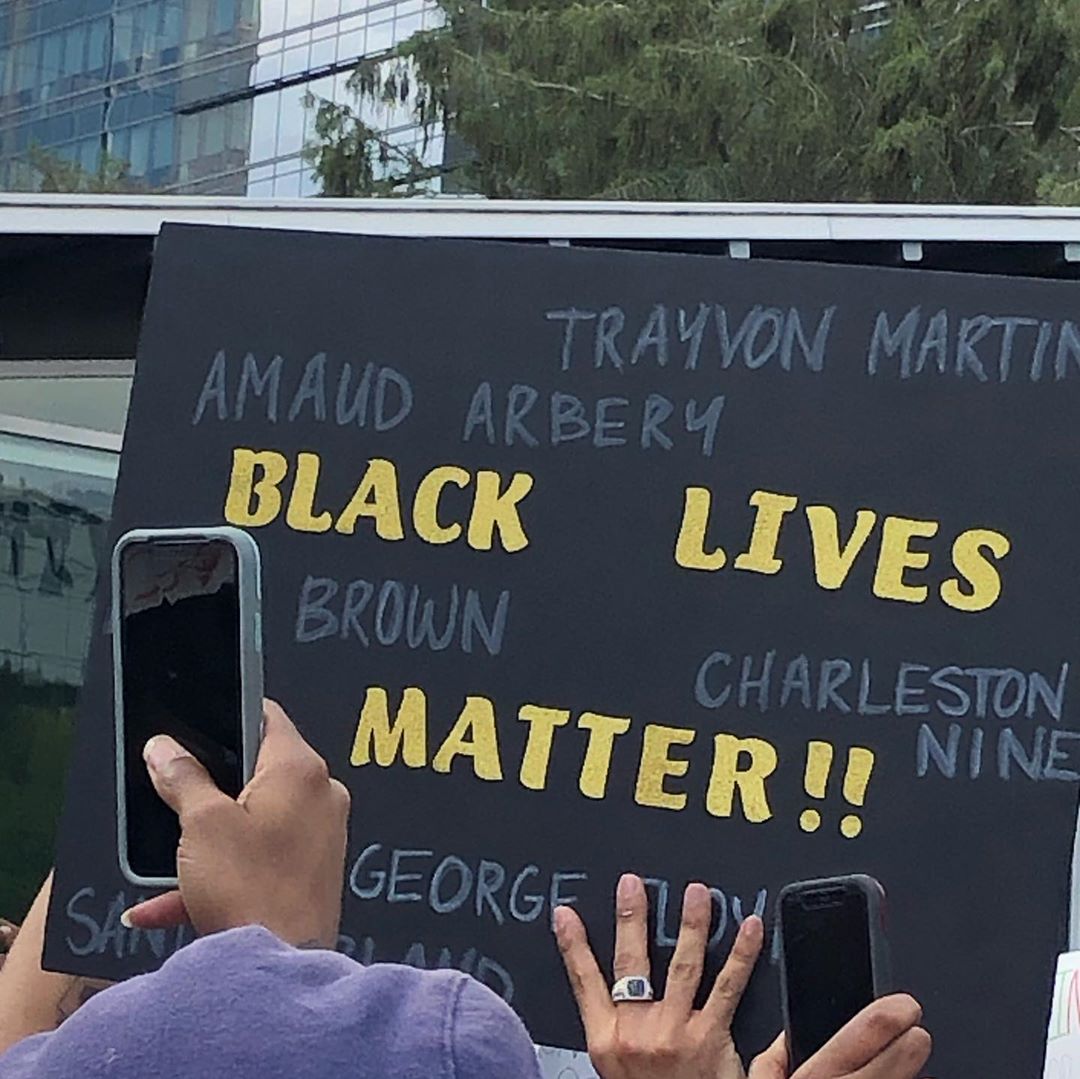 TRAYVON MARTIN
AMAUD ARBERY
BLACK LIVES
BROWN
CHARLESTON
NINE
MATTER!!
GEORGE